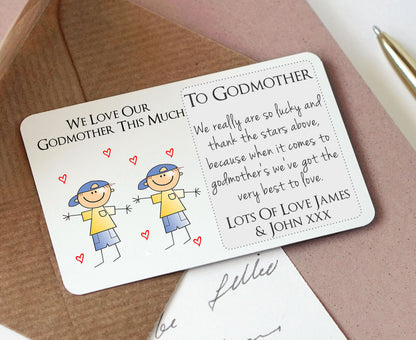 We Love Our
Godmother This Much
To Godmother
We really are so lucky and
thank the stars above,
because when it comes to
godmother's we've got the
very best to love.
Lots Of Love James
& John xxx